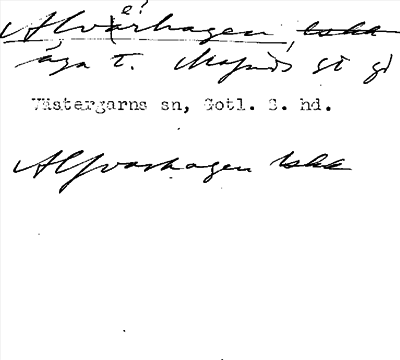 e?
Alvarhagen, lska
äga t. Magnds st gd
Västergarns sn, Gotl. S. hd.
Alfvarhagen lska